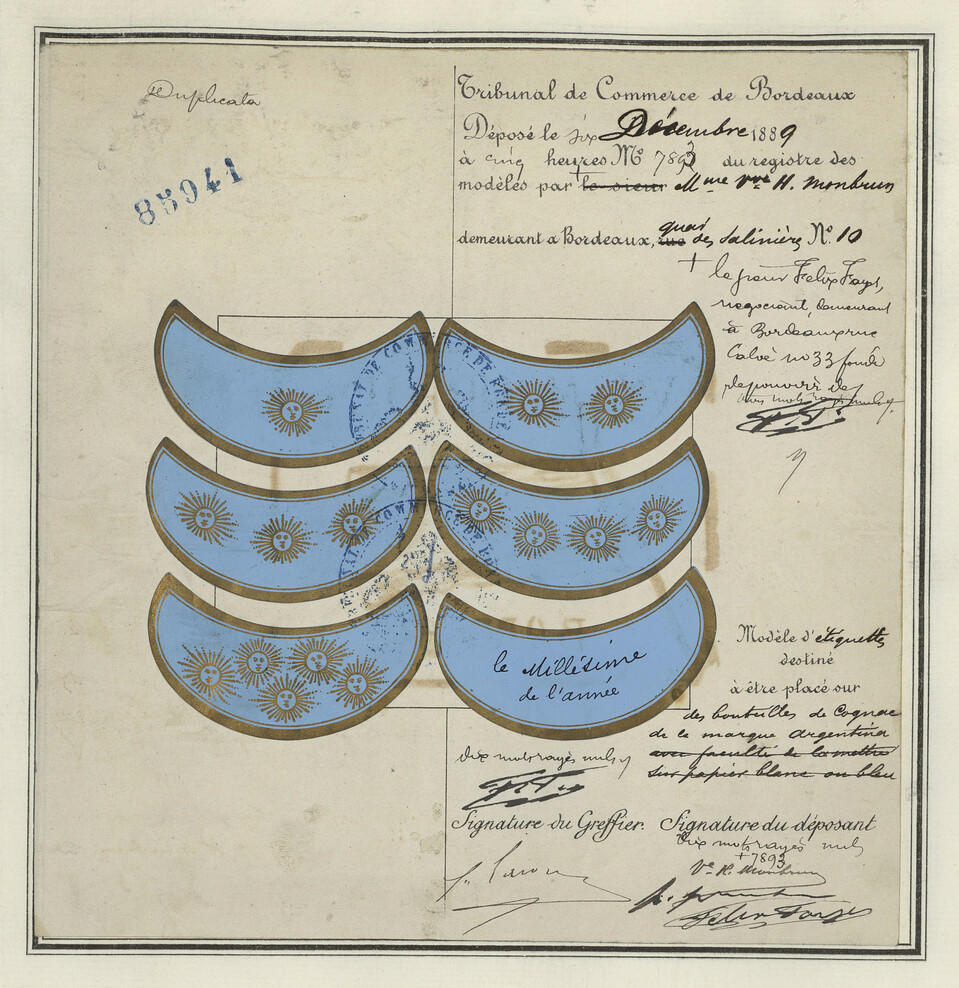 Duplicata
85941
Tribunal de Commerce de Bordeaux
Déposé le six Décembre 1889
à cinq heures Nº 7893 du registre des
modèles par le sieur Mme Vve H. Monbrun
demeurant à Bordeaux, rue quai des Salinière Nº 10
+ le sieur Felix Fays,
negociant, demeurant
à Bordeaux rue
Calvé no 33 fondé
de pouvoir de
mots rayés nuls
TRIBUNAL DE COMMERCE DE BORDE
TRIBUNAL DE COMMERCE DE BORDE
le Millésime
de l'année
Modèle d'étiquettes
destiné
à être placé sur
des bouteilles de Cognac
de la marque argentina
avec faculté de la mettre
sur papier blanc ou bleu
dix mots rayés nuls
Signature du Greffier. Signature du déposant
Dix mots rayés nuls
+ 7893
Ve H. Monbrun